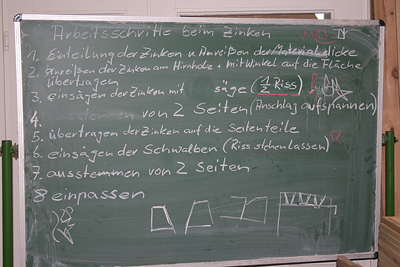 Arbeitsschritte beim Zinken
1. Einteilung der Zinken u. Anreißen der Materialdicke
2. Anreißen der Zinken am Hirnholz + mit Winkel auf die Fläche
übertragen
3. einsägen der Zinken mit säge (1/2 Riss)
4. ausstemmen von 2 Seiten (Anschlag aufspannen)
5. übertragen der Zinken auf die Seitenteile
6. einsägen der Schwalben (Riss stehen lassen)
7. ausstemmen von 2 Seiten
8 einpassen